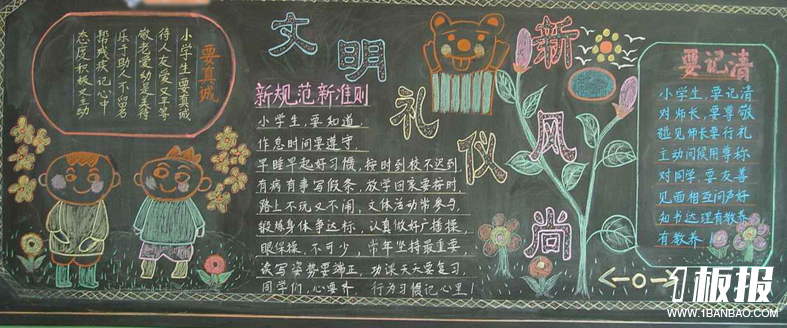 要真诚
小学生要真诚
待人友爱又平等
敬老爱幼是美德
乐于助人不留名
帮残疾记心中
态度积极又主动
文明礼仪新风尚
新规范新准则
小学生,要知道,
作息时间要遵守,
早睡早起好习惯,按时到校不迟到.
有病有事写假条,放学回家要按时,
路上不玩又不闹,文体活动常参与,
锻炼身体争达标,认真做好广播操,
眼保操,不可少,常年坚持最重要,
读写姿势要端正,功课天天要复习.
同学们,心要齐,行为习惯记心里!
要记清
小学生,要记清
对师长,要尊敬
碰见师长要行礼
主动问候用尊称
对同学,要友善
见面相互问声好
知书达理有教养
有教养!
1板报
WWW.1BANBAO.COM